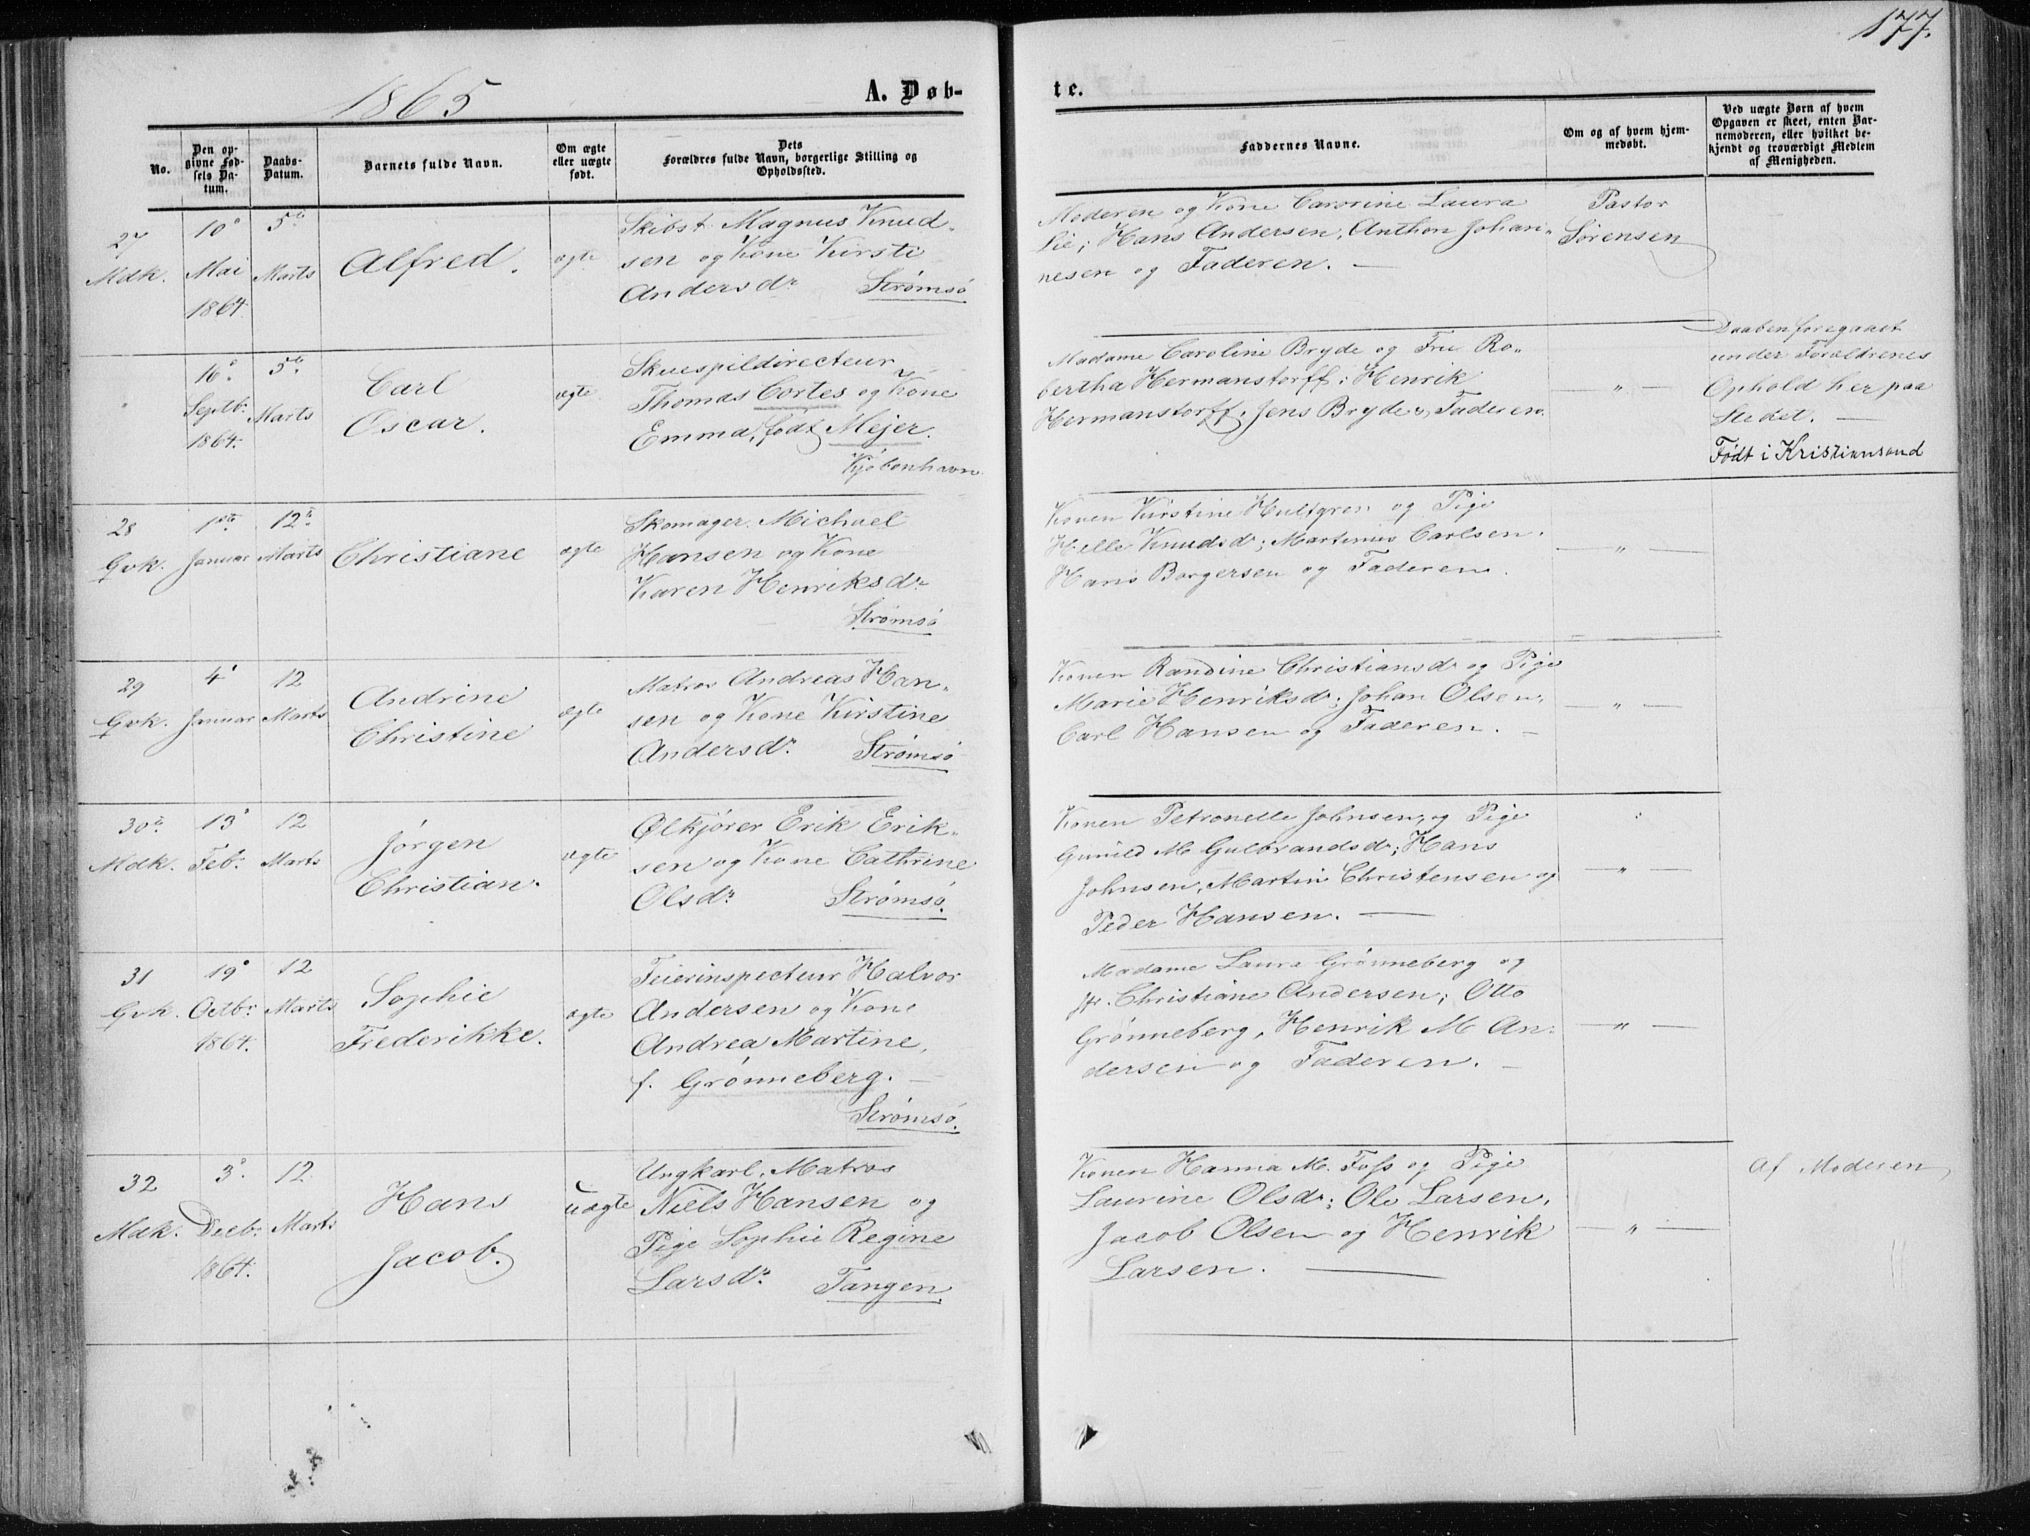 177.
1865
A. Døb-
te.
No.
Den op-
givne Fød-
sels Da-
tum.
Daabs-
Datum.
Barnets fulde Navn.
Om ægte
eller uægte
født.
Dets
Forældres fulde Navn, borgerlige Stilling og
Opholdssted.
Faddernes Navne.
Om og af hvem hjem-
medøbt.
Ved uægte Børn af hvem
Opgaven er skeet, enten Bar-
nemoderen, eller hvilket be-
kjendt og troværdigt Medlem
af Menigheden.
27
Mdk.
10
Mai
1864.
5te
Marts
Alfred.
ægte
Skibst. Magnus Knud-
sen og Kone Kirsti
Andersdr Strømsø
Moderen og Kone Carorine Laura
Lie; Hans Andersen, Anthon Johan-
nesen og Faderen. —
Pastor
Sørensen
16.
Septb:
1864.
5te
Marts
Carl
Oscar.
ægte
Skuespildirecteur
Thomas Cortes og Kone
Emma, født Mejer.
Kjøbenhavn
Madame Caroline Bryde og Fru Ro-
bertha Hermanstorff; Henrik
Hermanstorff, Jens Bryde & Faderen.
— " —
Daaben foregaaet
under Forældrenes
Ophold her paa
Stedet. —
Født i Kristiansand
28
Qvk.
1ste
Januar
12te
Marts
Christiane
ægte
Skomager Michael
Hansen og Kone
Karen Henriksdr
Strømsø
Konen Kirstine Hultgren og Pige
Helle Knudsdr; Martinus Carlsen.
Hans Borgersen og Faderen.
— " —
29
Qvk.
4
Januar
12
Marts
Andrine
Christine
ægte
Matros Andreas Han-
sen og Kone Kirstine
Andersdr. Strømsø
Konen Randine Christiansdr og Pige
Marie Henriksdr; Johan Olsen,
Carl Hansen og Faderen. —
— " —
30te
Mdk.
13
Feb:
12
Marts
Jørgen
Christian.
ægte
Ølkjører Erik Erik-
sen og Kone Cathrine
Olsdr Strømsø.
Konen Petronelle Johnsen, og Pige
Gunild M Gulbrandsdr; Hans
Johnsen, Martin Christensen og
Peder Hansen. —
— " —
31
Qvk.
19
Octb:
1864.
12
Marts
Sophie
Frederikke.
ægte
Feierinspecteur Halvor
Andersen og Kone
Andrea Martine,
f. Grønneberg. —
Strømsø.
Madame Laura Grønneberg og
Christiane Andersen; Otto
Grønneberg, Henrik M An-
dersen og Faderen. —
— " —
32
Mdk.
3
Decb:
1864.
12
Marts
Hans
Jacob.
uægte
Ungkarl, Matros
Niels Hansen og
Pige Sophie Regine
Larsdr. Tangen.
Konen Hanna M. Foss og Pige
Laurine Olsdr; Ole Larsen,
Jacob Olsen og Henrik
Larsen. —
— " —
Af Moderen